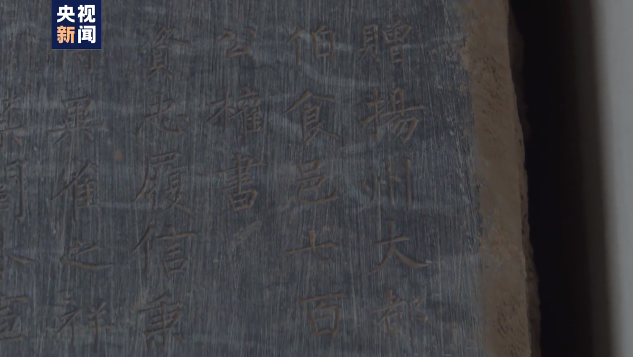 央视
新闻
贈揚州大都
伯食邑七百
公權書
履信秉
異雀之祥